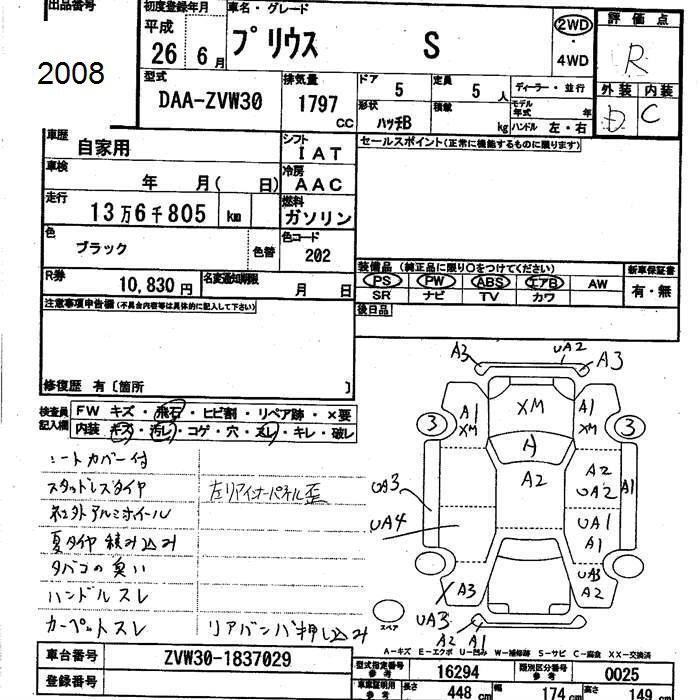 出品番号
2008
初度登録年月
平成
26年 6月
車名・グレード
プリウス S
2WD
・
4WD
評価点
R
外装 内装
D C
型式
DAA-ZVW30
排気量
1797
CC
ドア
5
定員
5 人
ディーラー・並行
形状
ハッチB
積載
kg
モデル年式 年
ハンドル 左・右
車歴
自家用
シフト
IAT
セールスポイント(正常に機能するものに限ります)
車検
年 月( 日)
冷房
AAC
走行
13万6千805 km
燃料
ガソリン
色
ブラック
色替
色コード
202
R券
10,830円
名変通知期限
月 日
装備品 (純正品に限り○をつけてください)
新車保証書
PS PW ABS エアB AW
有・無
SR ナビ TV カワ
注意事項申告欄(不具合内容等は具体的に記入して下さい)
後日品
修復歴 有〔箇所 〕
検査員記入欄
FW キズ・飛石・ヒビ割・リペア跡・×要
内装 キズ・汚レ・コゲ・穴・スレ・キレ・破レ
シートカバー付
スタッドレスタイヤ
社外アルミホイール
夏タイヤ積み込み
タバコの臭い
ハンドルスレ
カーペットスレ
左リアインナーパネル歪
リアバンパ押し込み
A3
UA2
A3
A1
XM
XM
A1
XM
3
3
A
A2
A2
UA2
A1
UA3
UA4
UA1
A1
A3
UA3
A2
UA3
A2
A1
スペア
A-キズ E-エクボ U-凹み W-補修跡 S-サビ C-腐食 XX-交換済
車台番号
ZVW30-1837029
登録番号
型式指定番号
参考
16294
類別区分番号
参考
0025
車庫証明用
参考
長さ
448 cm
幅
174 cm
高さ
149 cm